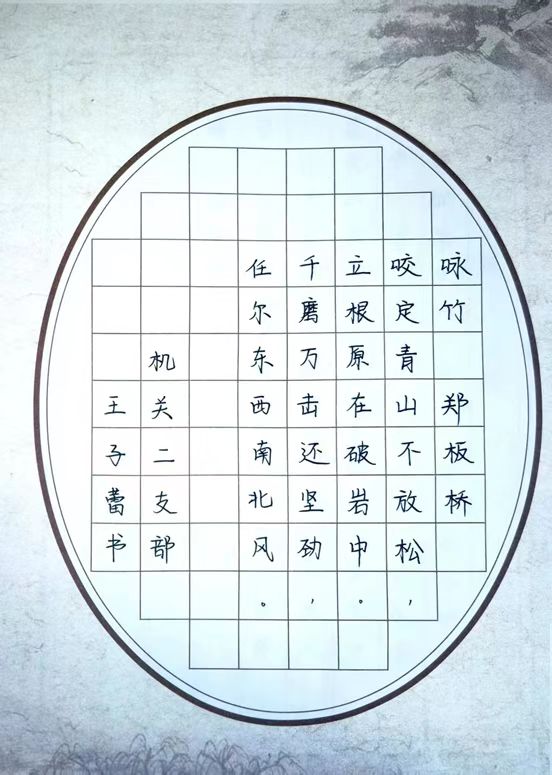 咏竹 郑板桥
咬定青山不放松，
立根原在破岩中。
千磨万击还坚劲，
任尔东西南北风。
机关二支部
王子蕾书